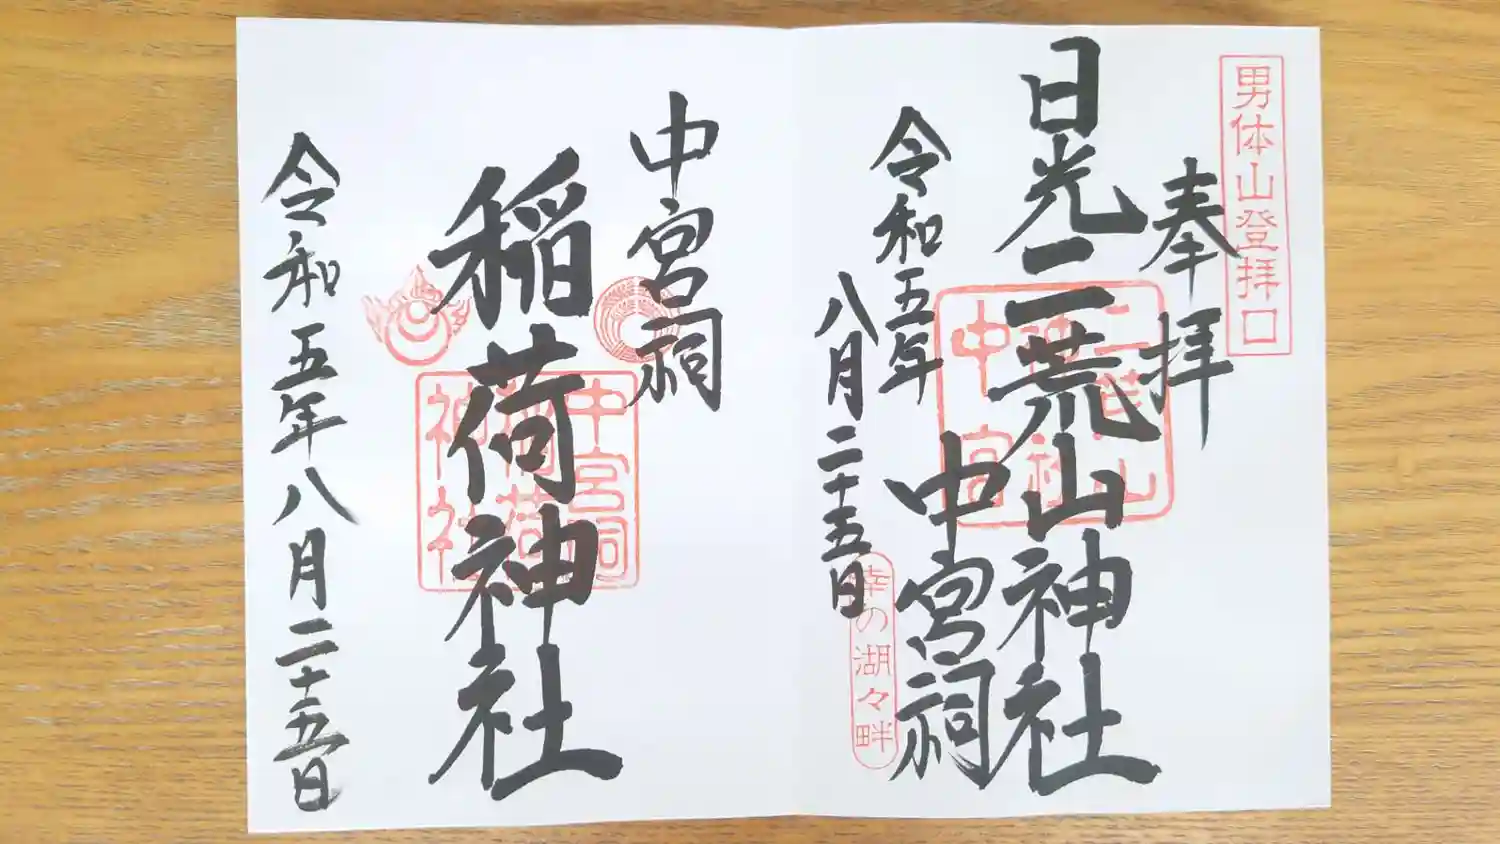 男体山登拝口
奉拝
日光二荒山神社
中宮祠
令和五年
八月二十五日
幸の湖々畔
中宮祠
稲荷神社
中宮祠
稲荷
神社
令和五年八月二十五日